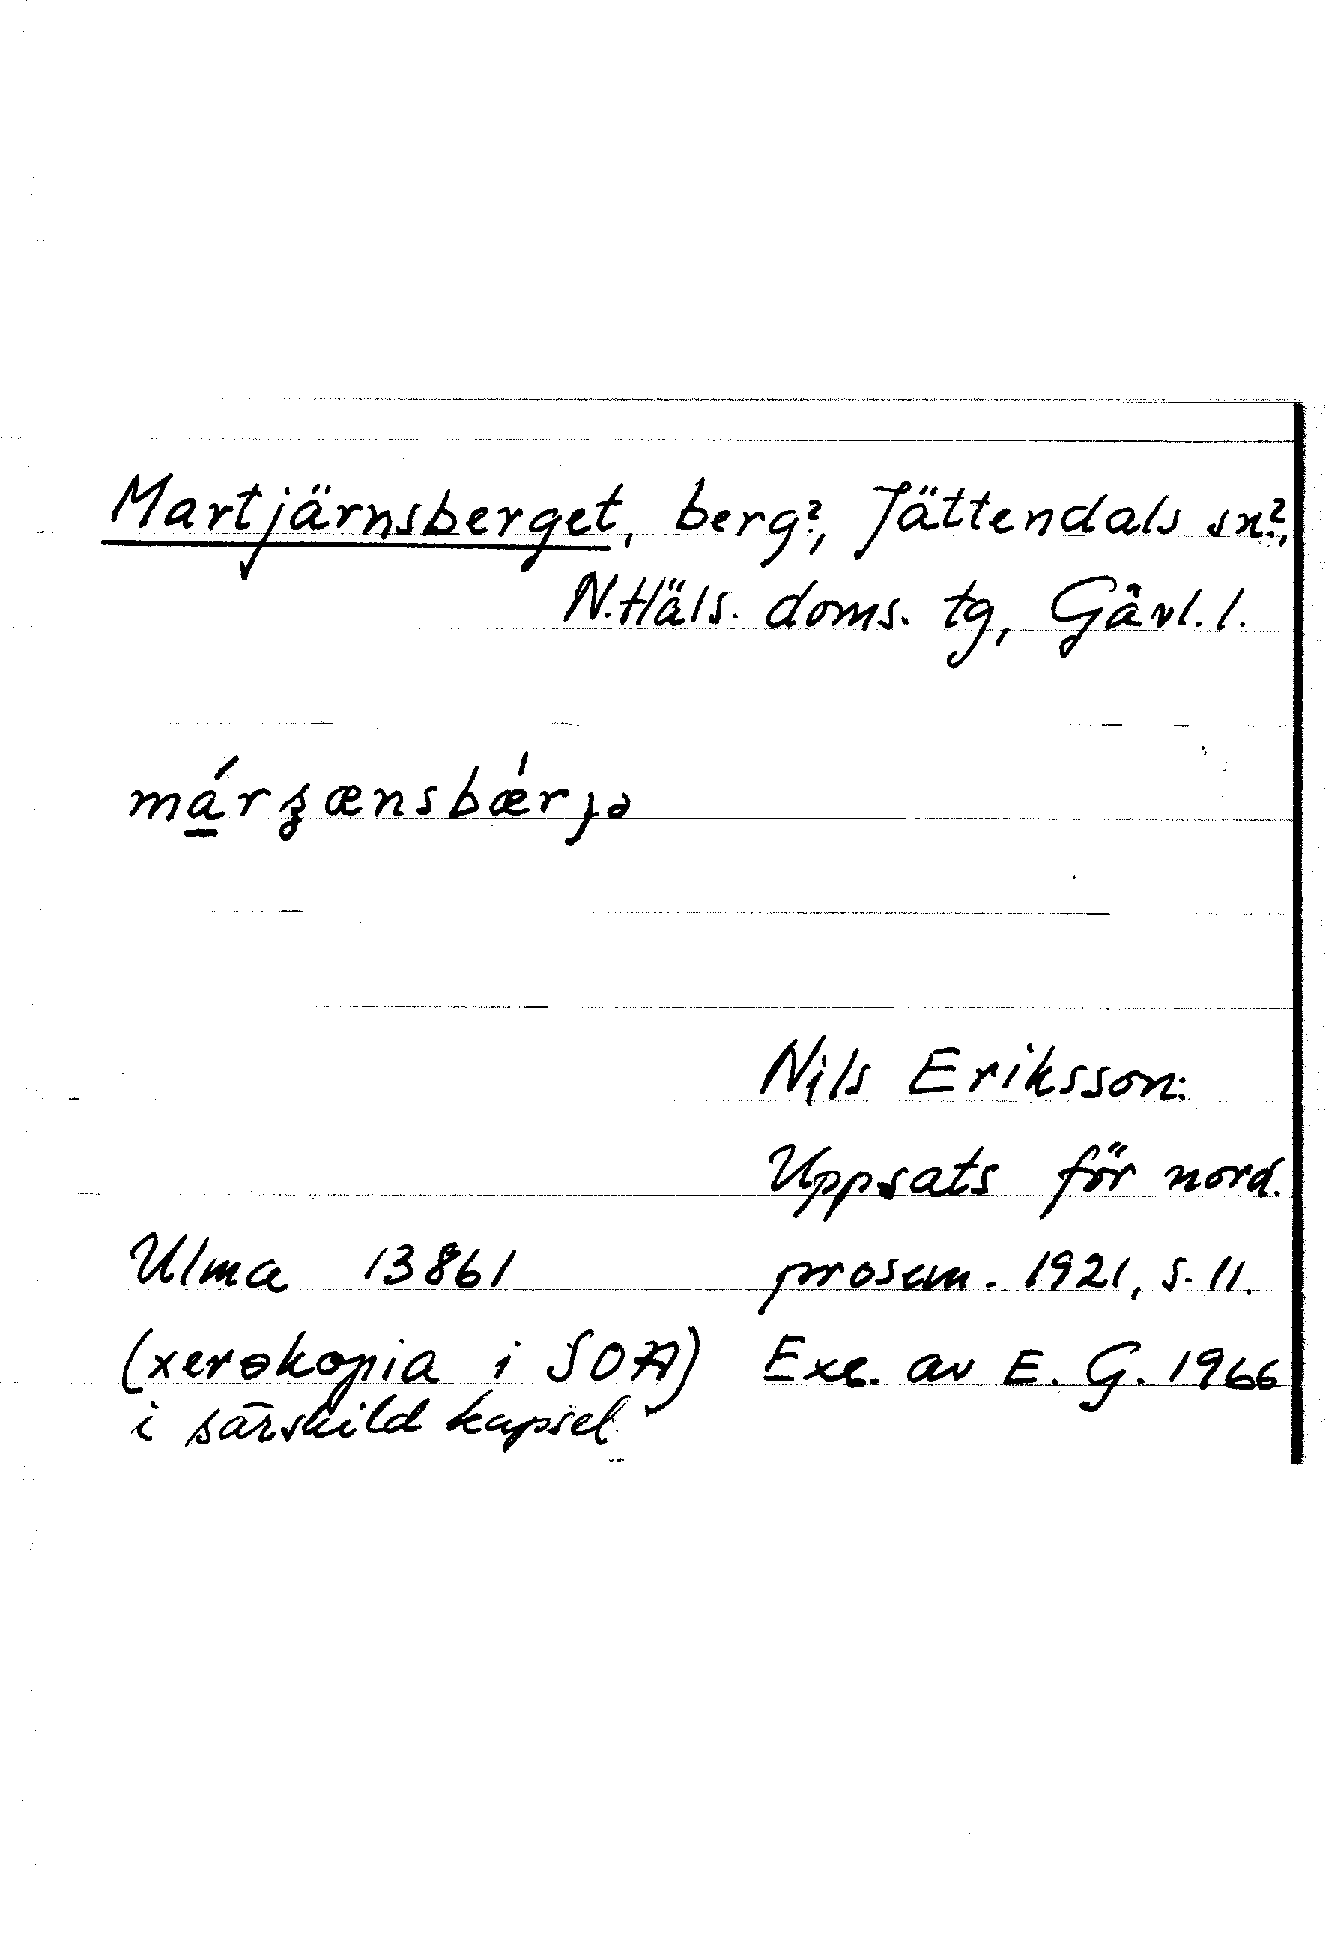 Martjärnsberget, berg?, Jättendals sn?,
N. Häls. doms. tg, Gävl. l.
Nils Eriksson:
Uppsats för nord.
Ulma 13861 prosem. 1921, s. 11.
(xerokopia i SOA) Exc. av E. G. 1966
i särskild kapsel